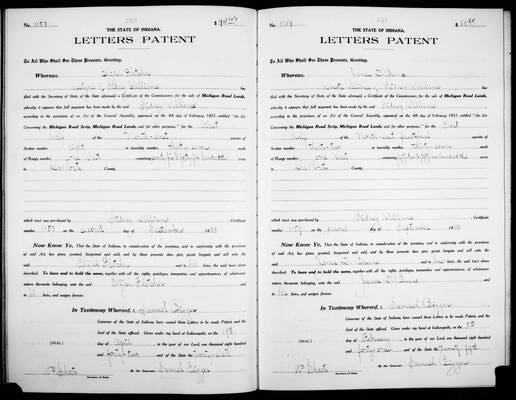 No. 1153
THE STATE OF INDIANA.
LETTERS PATENT
To All Who Shall See These Presents, Greeting:
Whereas,
Williams has
filed with the Secretary of State, the State aforesaid a Certificate of the Commissioners, for the sale of Michigan Road Lands,
whereby it appears that full payment has been made by the said Sidney Williams
according to the provisions of an Act of the General Assembly, approved on the 4th day of February, 1831, entitled "An Act
Concerning the Michigan Road Scrip, Michigan Road Lands, and for other purposes," for the West
half quarter of
Section number in township number thirty seven north
of Range number one West containing acres
in County.
which tract was purchased by Sidney Williams, Certificate
number 1153 on the second day of September 1833
Now Know Ye, That the State of Indiana, in consideration of the premises, and in conformity with the provisions
of said Act, has given, granted, bargained and sold, and by these presents does give, grant, bargain and sell unto the
said and to his heirs, the said tract above
described: To have and to hold the same, together with all the rights, privileges, immunities and appurtenances, of whatsoever
nature thereunto belonging, unto the said and
to his heirs, and assigns forever.
In Testimony Whereof, I, Samuel Bigger
Governor of the State of Indiana, have caused these Letters to be made Patent, and the
Seal of the State affixed. Given under my hand at Indianapolis, on the
[SEAL] day of April, in the year of our Lord, one thousand eight hundred
and forty two and of the State the twenty sixth
By the Governor: Samuel Bigger
Wm Sheets
Secretary of State.
No. 1154
THE STATE OF INDIANA.
LETTERS PATENT
To All Who Shall See These Presents, Greeting:
Whereas,
Williams has
filed with the Secretary of State, the State aforesaid a Certificate of the Commissioners, for the sale of Michigan Road Lands,
whereby it appears that full payment has been made by the said Sidney Williams
according to the provisions of an Act of the General Assembly, approved on the 4th day of February, 1831, entitled "An Act
Concerning the Michigan Road Scrip, Michigan Road Lands, and for other purposes," for the East
half North east fractional quarter of
Section number in township number thirty seven north
of Range number one West containing acres
in County.
which tract was purchased by Sidney Williams, Certificate
number on the second day of September 1833
Now Know Ye, That the State of Indiana, in consideration of the premises, and in conformity with the provisions
of said Act, has given, granted, bargained and sold, and by these presents does give, grant, bargain and sell unto the
said James and to his heirs, the said tract above
described: To have and to hold the same, together with all the rights, privileges, immunities and appurtenances, of whatsoever
nature thereunto belonging, unto the said James and
to his heirs, and assigns forever.
In Testimony Whereof, I, Samuel Bigger
Governor of the State of Indiana, have caused these Letters to be made Patent, and the
Seal of the State affixed. Given under my hand at Indianapolis, on the
[SEAL] day of February, in the year of our Lord, one thousand eight hundred
and forty one and of the State the twenty fifth
By the Governor: Samuel Bigger
Wm Sheets
Secretary of State.